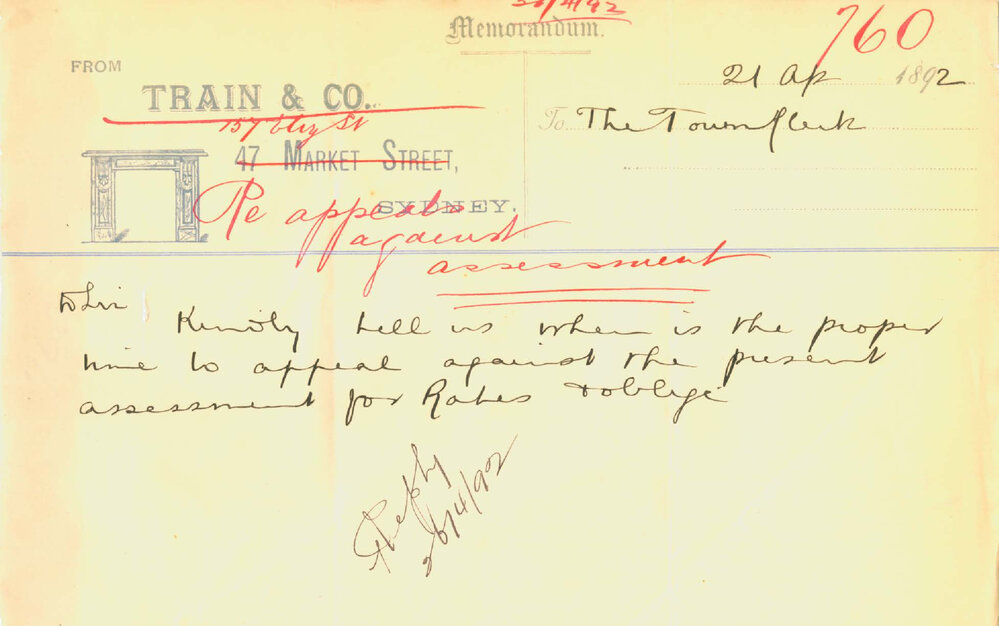 26/4/92
Memorandum.
760
FROM
21 Ap 1892
TRAIN & CO.
To The Town Clerk
157 St
47 MARKET STREET,
SYDNEY.
Re appeals
against
assessment
Sir
Kindly tell us when is the proper
time to appeal against the present
assessment for Rates & oblige
Reply
26/4/92